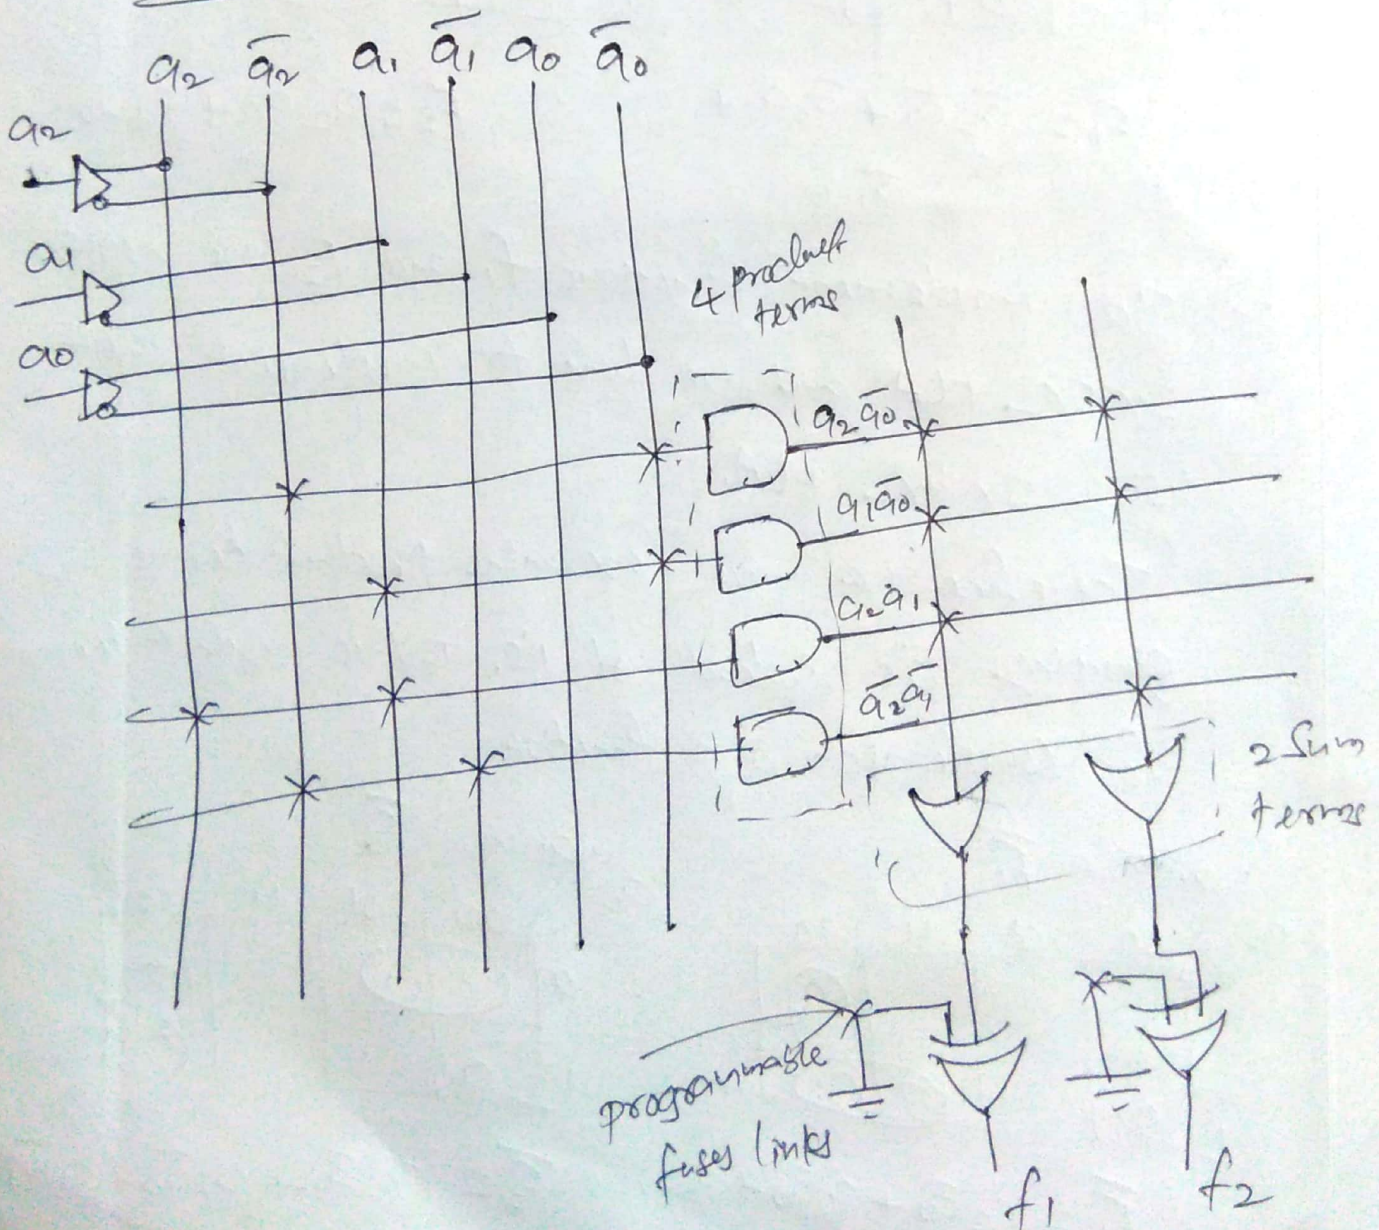 a₂ a̅₂ a₁ a̅₁ a₀ a̅₀
a₂
a₁
a₀
4 product
terms
a₂a̅₀
a₁a̅₀
a₂a₁
a̅₂a̅₁
2 Sum
terms
programmable
fuses links
f₁
f₂